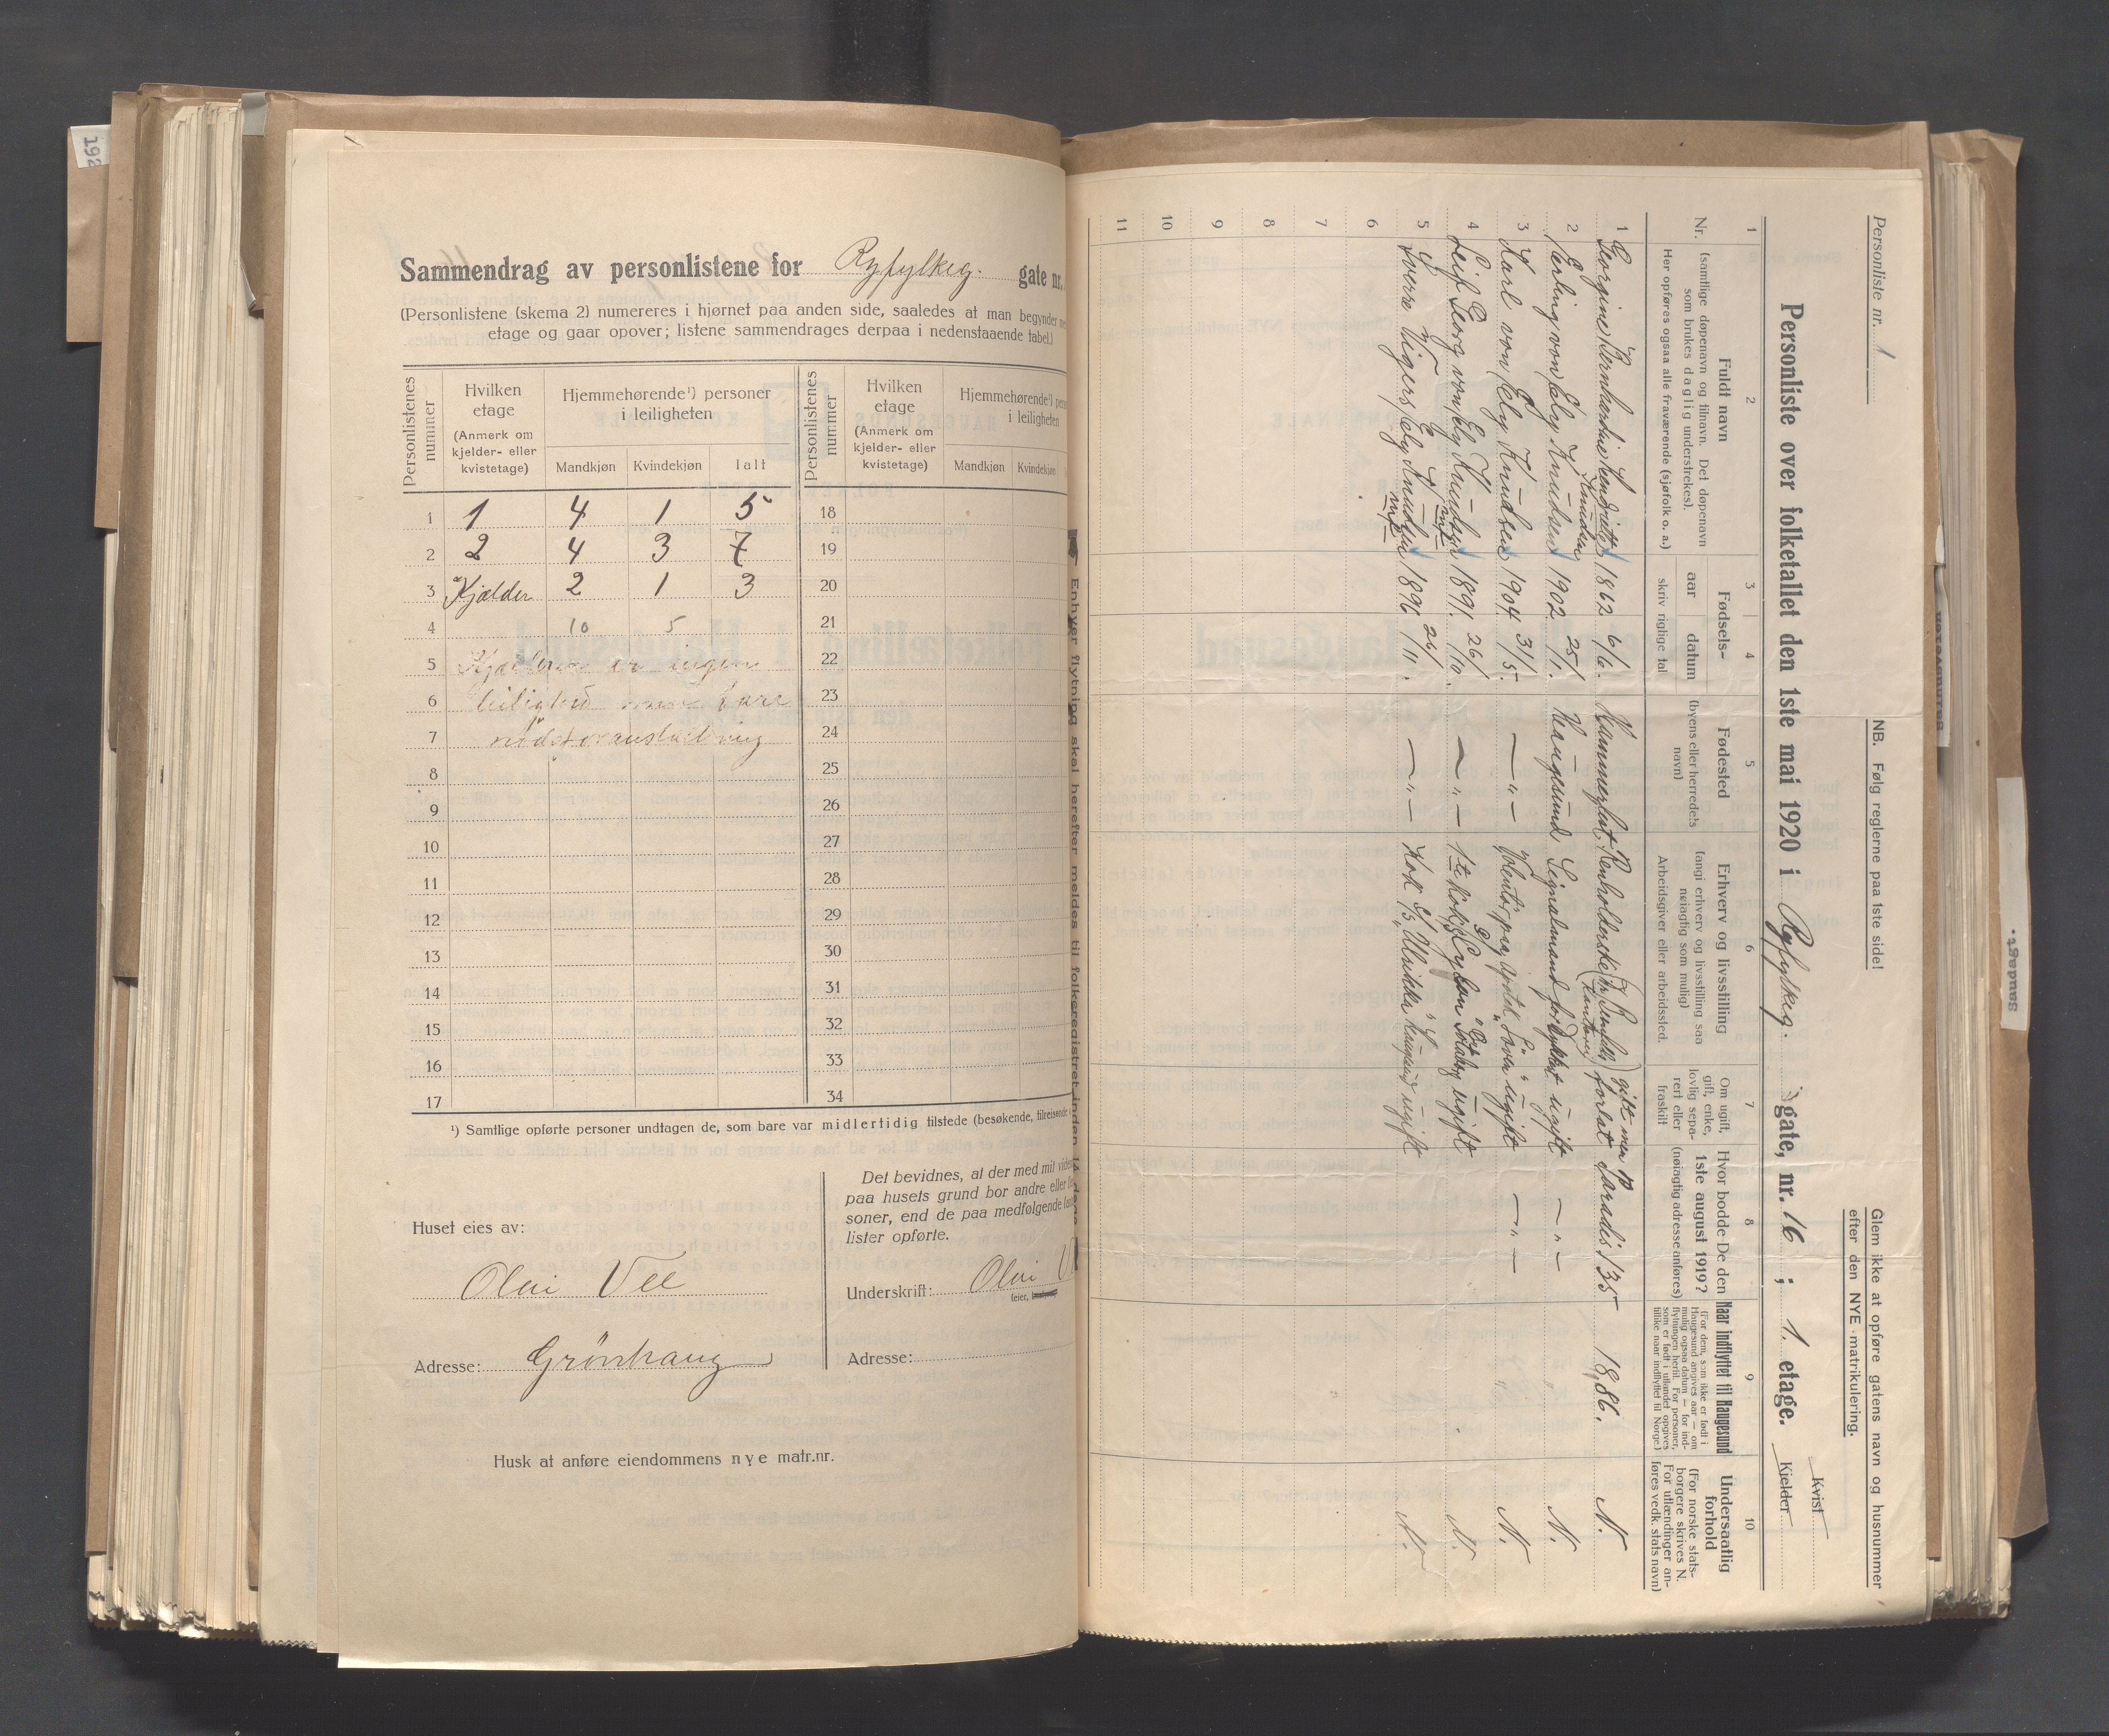 192
Sammendrag av personlistene for Ryfylkeg. gate nr.
(Personlistene (skema 2) numereres i hjørnet paa anden side, saaledes at man begynder
etage og gaar opover; listene sammendrages derpaa i nedenstaaende tabel.)
Personlistenes nummer
Hvilken etage (Anmerk om kjelder- eller kvistetage)
Hjemmehørende¹) personer i leiligheten
Mandkjøn Kvindekjøn Ialt
Personlistenes nummer
Hvilken etage (Anmerk om kjelder- eller kvistetage)
Hjemmehørende¹) i leiligheten
Mandkjøn Kvindekjøn
1 1 4 1 5 18
2 2 4 3 7 19
3 Kjælder 2 1 3 20
4 10 5 21
5 Kjælderen er ingen 22
6 leilighed men bare 23
7 nødsforanstaltning 24
8 25
9 26
10 27
11 28
12 29
13 30
14 31
15 32
16 33
17 34
¹) Samtlige opførte personer undtagen de, som bare var midlertidig tilstede (besøkende, tilreisende
Huset eies av:
Olai Vee
Adresse: Grønhaug
Det bevidnes, at der med mit
paa husets grund bor andre eller
soner, end de paa medfølgende
lister opførte.
Underskrift: Olai
(eier,
Adresse:
Husk at anføre eiendommens nye matr.nr.
Enhver flytning skal herefter meldes til folkeregistret inden 14 dage
Personliste nr. 1
NB. Følg reglerne paa 1ste side!
Glem ikke at opføre gatens navn og husnummer
efter den NYE matrikulering.
Personliste over folketallet den 1ste mai 1920 i Ryfylkeg. gate, nr. 16 ; 1. etage.
Kvist
Kjelder
1 2 3 4 5 6 7 8 9 10
Nr.
Fuldt navn
(samtlige døpenavn og tilnavn. Det døpenavn
som brukes daglig understrekes).
Her opføres ogsaa alle fraværende (sjøfolk o. a.)
Fødsels-
aar datum
skriv rigtige tal
Fødested
(byens eller herredets
navn)
Erhverv og livsstilling
(angi erhverv og livsstilling saa
nøiagtig som mulig)
Arbeidsgiver eller arbeidssted.
Om ugift,
gift, enke,
lovlig sepa-
rert eller
fraskilt
Hvor bodde De den
1ste august 1919?
(nøiagtig adresse anføres)
Naar indflyttet til Haugesund
(For dem, som ikke er født i
Haugesund angives aar — om
mulig ogsaa datum — for ind-
flytningen hertil. For personer,
som er født i utlandet opgives
tillike naar indflyttet til Norge.)
Undersaatlig
forhold
(For norske stats-
borgere skrives N.
For utlændinger an-
føres vedk. stats navn)
1 Georgine Bernhardine Hendritte Knudsen 1862 6/6. Hammerfest. Renholderske gift men forlat Paradis 135 1886. N.
2 Erling von Ely Knudsen 1902. 25/1. Haugesund ugift —„— N.
3 Karl von Ely Knudsen 1904 3/5. —„— ugift —„— N.
4 Leif Georg von Ely Knudsen 1891. 26/10. —„— 1ste Kok ugift N.
5 Sverre Ely Knudsen 1896 26/11. —„— Kok ugift N.
6
7
8
9
10
11